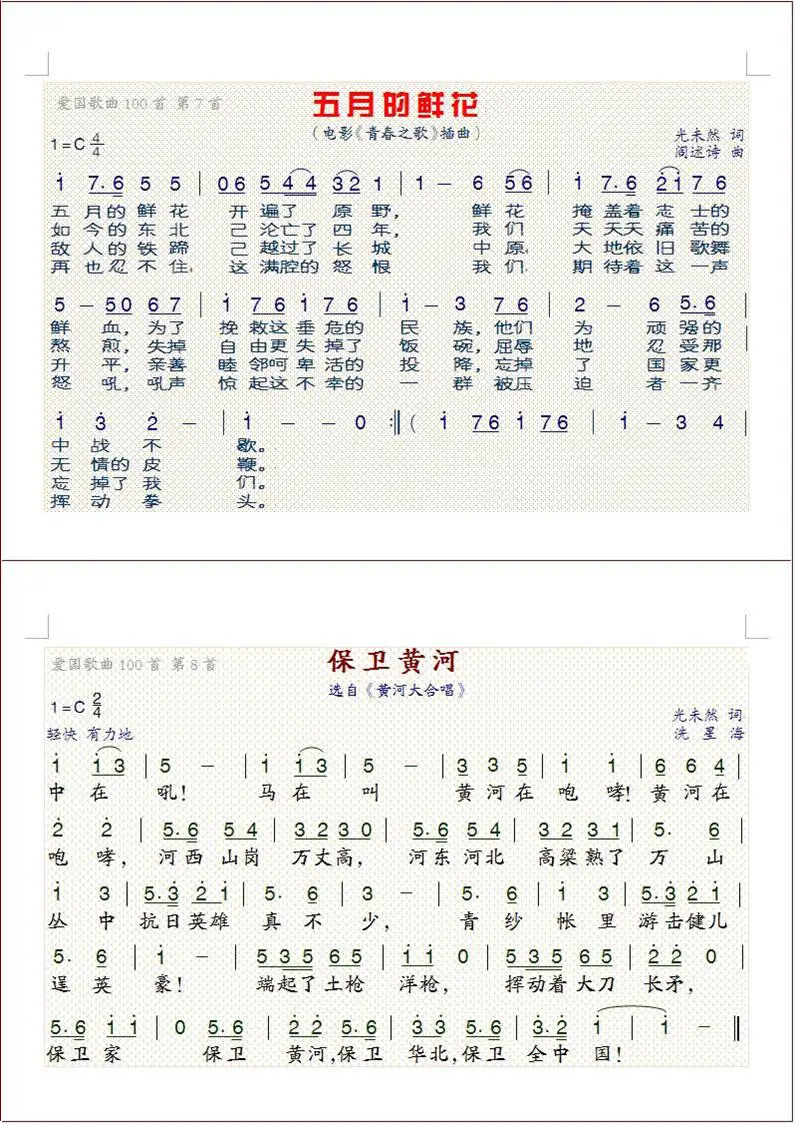 爱国歌曲100首 第7首
五月的鲜花
(电影《青春之歌》插曲)
1=C 4/4
光未然 词
阎述诗 曲
i 7. 6 5 5 | 0 6 5 4 4 3 2 1 | 1 — 6 5 6 | i 7. 6 2 i 7 6
五月的鲜花 开遍了原野, 鲜花 掩盖着志士的
如今的东北 己沦亡了四年, 我们 天天天痛苦的
敌人的铁蹄 己越过了长城 中原 大地依旧歌舞
再也忍不住 这满腔的怒恨 我们 期待着这一声
5 — 5 0 6 7 | i 7 6 i 7 6 | i — 3 7 6 | 2 — 6 5. 6 |
鲜血,为了 挽救这垂危的 民族,他们 为顽强的
熬煎,失掉 自由更失掉了 饭碗,屈辱 地忍受那
升平,亲善 睦邻呵卑活的 投降,忘掉 了国家更
怒吼,吼声 惊起这不幸的 一群被压 迫者一齐
i 3 2 — | i — — 0 :‖ ( i 7 6 i 7 6 | i — 3 4 |
中战不 歇。
无情的皮 鞭。
忘掉了我 们。
挥动拳 头。
爱国歌曲100首 第8首
保卫黄河
选自《黄河大合唱》
1=C 2/4
光未然 词
轻快 有力地
洗星海
i i 3 | 5 — | i i 3 | 5 — | 3 3 5 | i i | 6 6 4 |
中在 吼! 马在 叫 黄河在咆哮!黄河在
2 2 | 5. 6 5 4 | 3 2 3 0 | 5. 6 5 4 | 3 2 3 1 | 5. 6 |
咆哮, 河西山岗 万丈高, 河东河北 高粱熟了 万山
i 3 | 5. 3 2 i | 5. 6 | 3 — | 5. 6 | i 3 | 5. 3 2 i |
丛中 抗日英雄 真不少, 青纱 帐里 游击健儿
5. 6 | i — | 5 3 5 6 5 | i 0 | 5 3 5 6 5 | 2 2 0 |
逞英 豪! 端起了土枪 洋枪, 挥动着大刀 长矛,
5. 6 i i | 0 5. 6 | 2 2 5. 6 | 3 3 5. 6 | 3. 2 i | i — ‖
保卫家 保卫 黄河,保卫 华北,保卫 全中国!